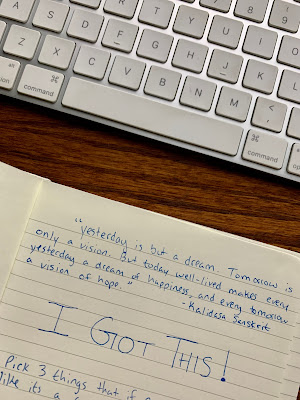 A S D F G H J K L
Z X C V B N M < ,
option
⌘
command
⌘
command
option
"Yesterday is but a dream. Tomorrow is
only a vision. But today well-lived makes every
yesterday a dream of happiness, and every tomorrow
a vision of hope."
- Kalidasa Sanskrit
I GOT THIS!
Pick 3 things that if
like its a